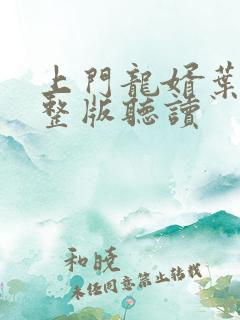 上門龍婿葉
整版聽讀
和曉
未经同意禁止转载